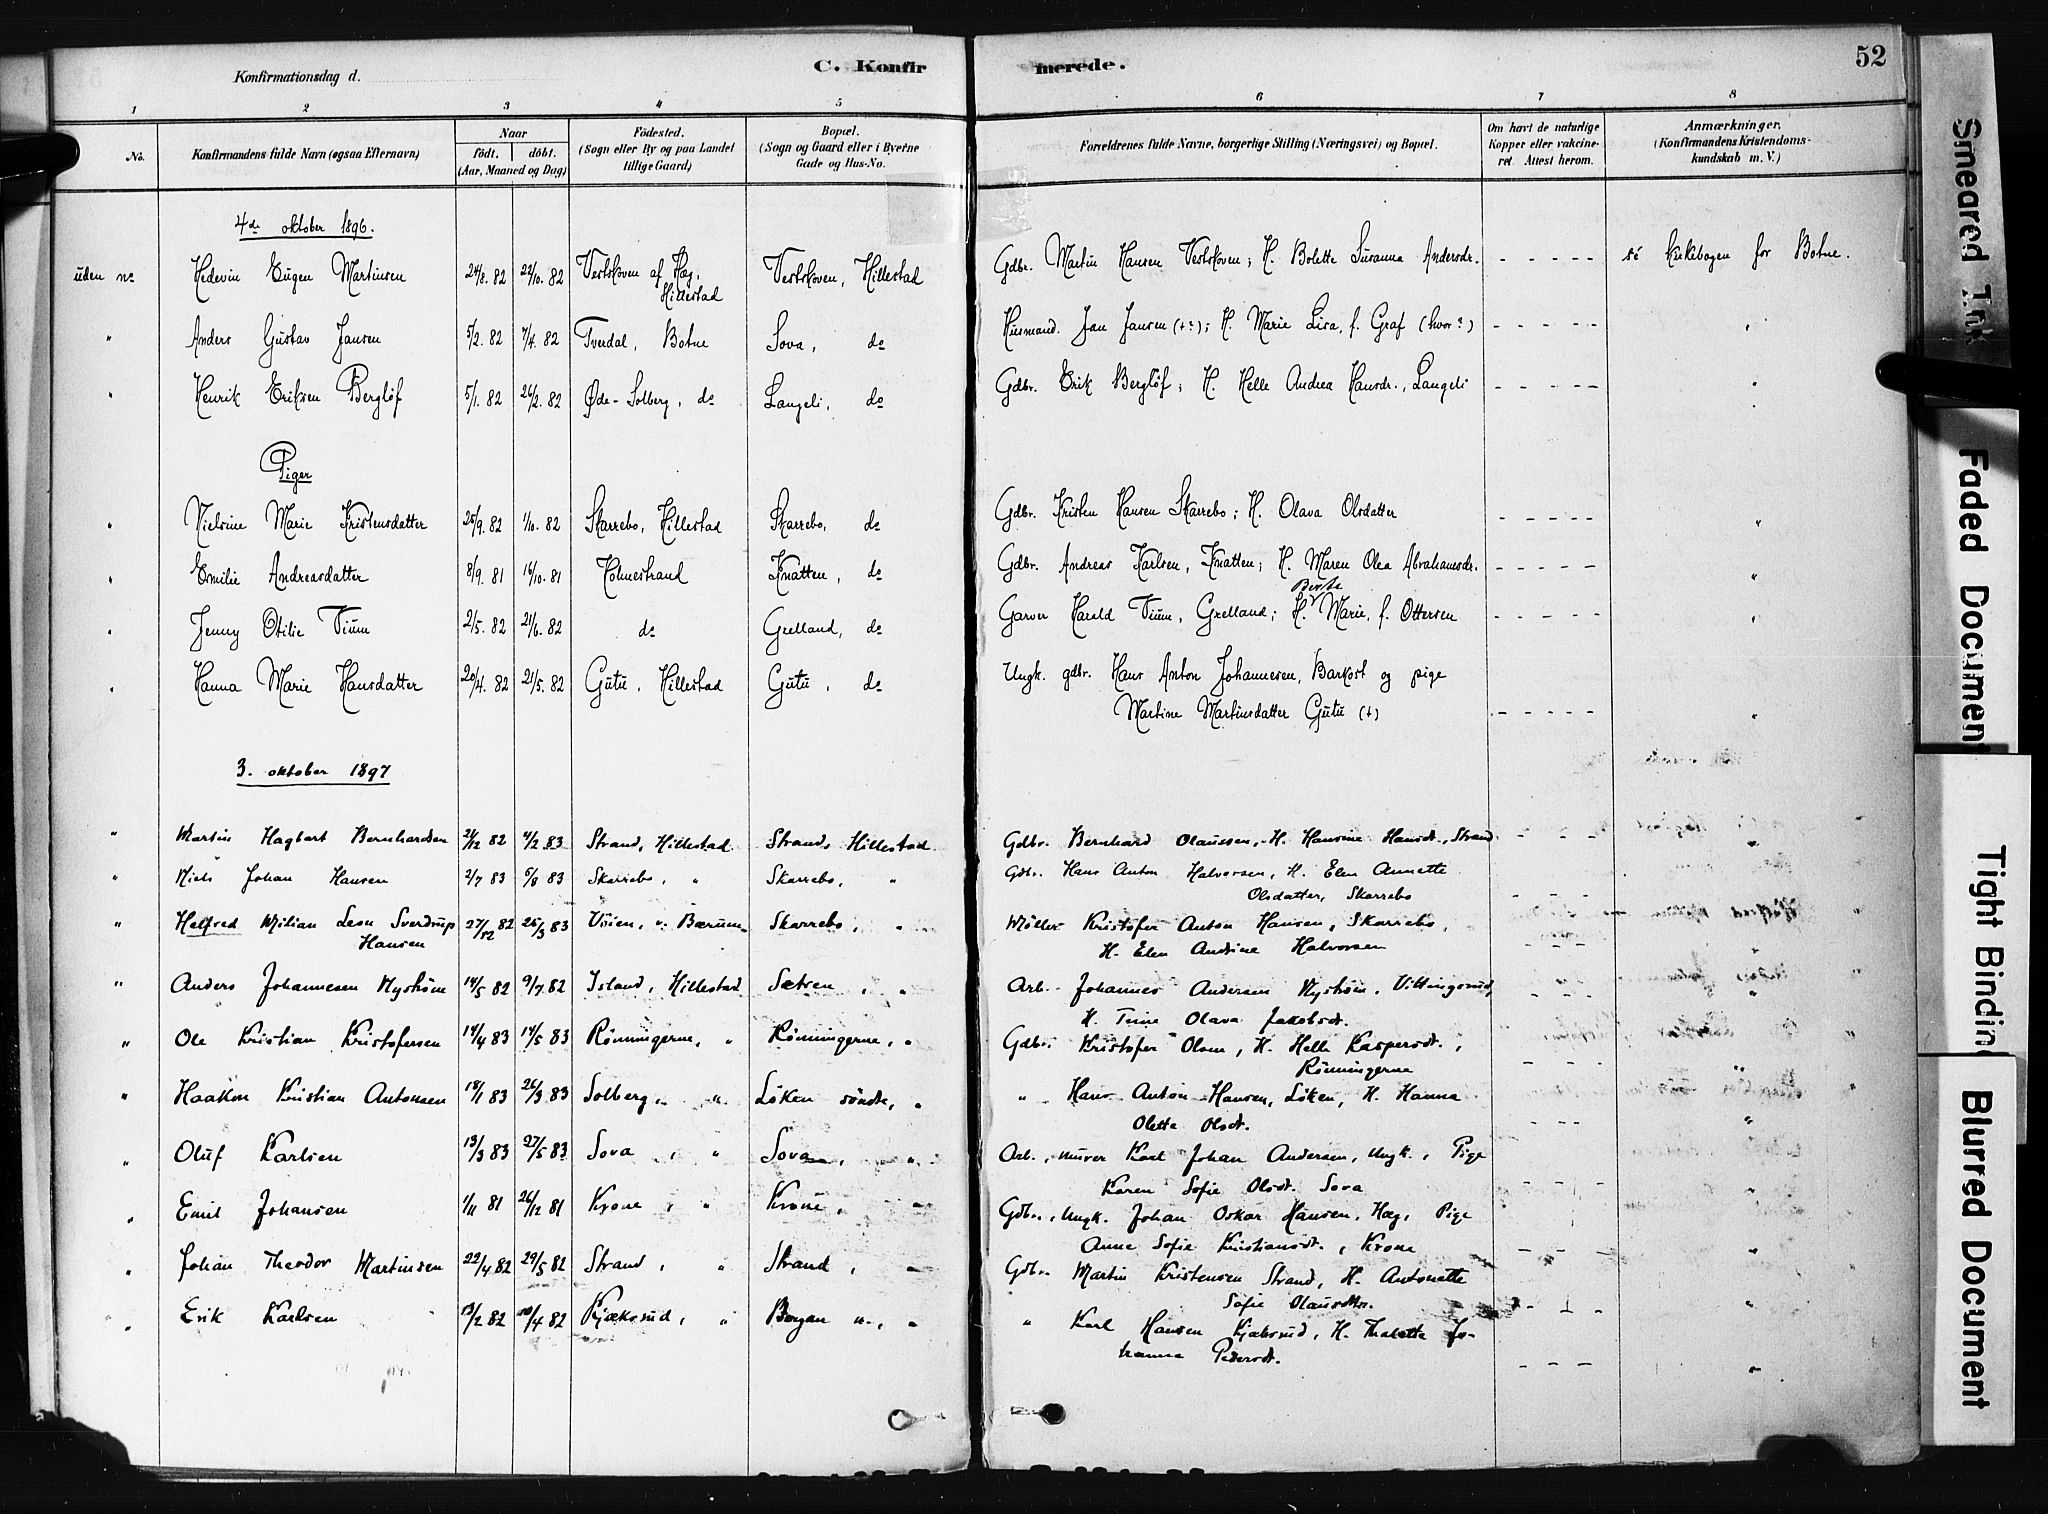 C. Konfirmerede.
52
Konfirmationsdag d.
1 2 3 4 5 6 7 8
No.
Konfirmandens fulde Navn (ogsaa Efternavn)
Naar
födt. döbt.
(Aar, Maaned og Dag)
Födested.
(Sogn eller By og paa Landet
tillige Gaard)
Bopæl.
(Sogn og Gaard eller i Byerne
Gade og Hus-No.
Forældrenes fulde Navne, borgerlige Stilling (Næringsvei) og Bopæl.
Om havt de naturlige
Kopper eller vakcine-
ret. Attest herom.
Anmærkninger.
(Konfirmandens Kristendoms-
kundskab m. V.)
4de oktober 1896.
uden no Hedevin Eugen Martinsen 24/8. 82 22/10. 82 Vestskoven af Hæg, Hillestad Vestskoven, Hillestad Gdbr. Martin Hansen Vestskoven; H. Bolette Susanna Andersdr. - - - - - se kirkebogen for Botne.
" Anders Gustav Jansen 5/2. 82 7/4. 82 Tverdal, Botne Sova, do Husmand. Jan Jansen (+?); H. Marie Lisa, f. Graf (hvor?) - - - - - "
" Henrik Eriksen Berglöf 5/1. 82 26/2. 82 Øde-Solberg, do Langeli, do Gdbr. Erik Berglöf; H. Helle Andrea Hansdr., Langeli - - - - - "
Piger
" Nielsine Marie Kristensdatter 25/9. 82 1/10. 82 Skarrebo, Hillestad Skarrebo, do Gdbr. Kristen Hansen Skarrebo; H. Olava Olsdatter - - - - - "
" Emilie Andreasdatter 8/9. 81 16/10. 81 Holmestrand Knatten, do Gdbr. Andreas Karlsen, Knatten; H. Maren Olea Abrahamsdr. - - - - - "
" Jenny Otilie Tium 2/5. 82 21/6. 82 do Grelland, do Garver Harald Tium, Grelland; H. Berthe Marie, f. Ottersen - - - - - "
" Hanna Marie Hansdatter 20/4. 82 21/5. 82 Gutu, Hillestad Gutu, do Ungk. gdbr. Hans Anton Johannesen, Barkost og pige
Martine Martinsdatter Gutu (+) - - - - - "
3. oktober 1897
" Martin Hagbart Bernhardsen 21/12 82 4/2 83 Strand, Hillestad Strand, Hillestad Gdbr. Bernhard Olaussen, H. Hansine Hansdt., Strand - - - "
" Niels Johan Hansen 2/7 83 5/8 83 Skarrebo, " Skarrebo, " Gdbr. Hans Anton Halvorsen, H. Elen Annette
Olsdatter, Skarrebo - - - "
" Helfred Milian Leon Sverdrup 27/12 82 26/3 83 Vöien, v. Bærum Skarrebo, " Møller Kristofer Anton Hansen, Skarrebo,
Hansen H. Elen Andrine Halvorsen - - - "
" Anders Johannesen Nyström 14/5 82 9/7 82 Island, Hillestad Sætren, " Arb. Johannes Andersen Nyström, Vittingsrud,
H. Trine Olava Jakobsdt. - - - "
" Ole Kristian Kristofersen 14/4 83 14/5 83 Rönningerne, " Rönningerne, " Gdbr. Kristofer Olsen, H. Helle Kaspersdt.,
Rönningerne - - - "
" Haakon Kristian Antonsen 18/1 83 26/3 83 Solberg, " Löken söndre, " " Hans Anton Hansen, Löken, H. Hanna
Olette Olsdt. - - - "
" Oluf Karlsen 13/3 83 27/5 83 Sova, " Sova, " Arb., murer Karl Johan Andersen, Ungk., Pige
Karen Sofie Olsdt. Sova - - - "
" Emil Johansen 1/11 81 26/12 81 Krone, " Krone, " Gdbr., Ungk. Johan Oskar Hansen, Hæg, Pige
Anne Sofie Kristiansdt., Krone - - - "
" Johan Theodor Martinsen 22/4 82 29/5 82 Strand, " Strand, " Gdbr. Martin Kristensen Strand, H. Antonette
Sofie Olausdtr. - - - "
" Erik Karlsen 13/2 82 10/4 82 Kjæksrud, " Bergan n., " " Karl Hansen Kjæksrud, H. Thalette Jo-
hanna Pedersdt. - - - "
Smeared Ink
Faded Document
Tight Binding
Blurred Document